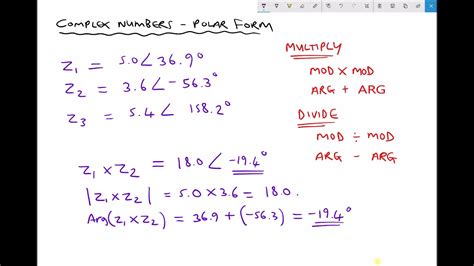 COMPLEX NUMBERS – POLAR FORM
Z1 = 5.0∠36.9°
Z2 = 3.6∠-56.3°
Z3 = 5.4∠ 158.2°
MULTIPLY
MOD X MOD
ARG + ARG
DIVIDE
MOD ÷ MOD
ARG - ARG
Z1 × Z2 = 18.0∠-19.4°
|Z1 × Z2| = 5.0 × 3.6 = 18.0.
Arg(Z1 × Z2) = 36.9 + (-56.3) = -19.4°